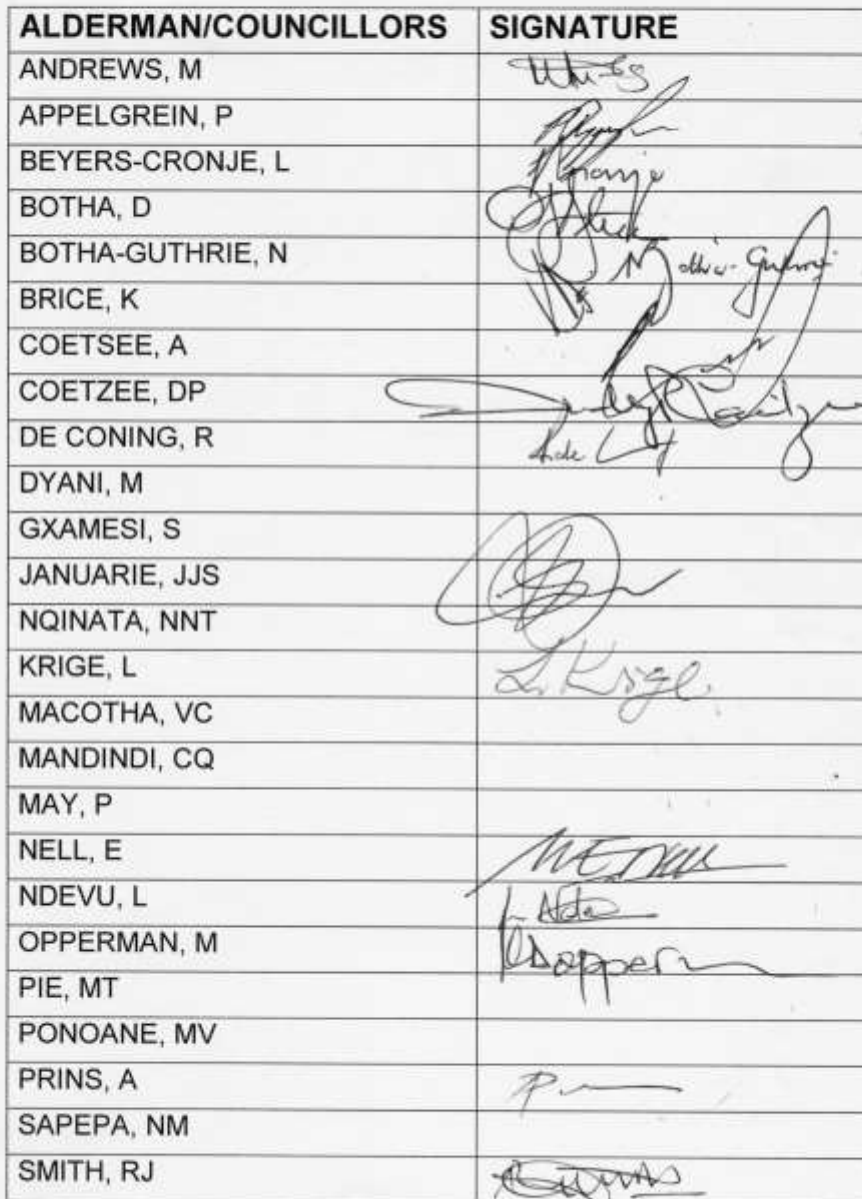 ALDERMAN/COUNCILLORS SIGNATURE
ANDREWS, M
APPELGREIN, P
BEYERS-CRONJE, L
BOTHA, D
BOTHA-GUTHRIE, N
BRICE, K
COETSEE, A
COETZEE, DP
DE CONING, R
DYANI, M
GXAMESI, S
JANUARIE, JJS
NQINATA, NNT
KRIGE, L L. Krige
MACOTHA, VC
MANDINDI, CQ
MAY, P
NELL, E
NDEVU, L
OPPERMAN, M
PIE, MT
PONOANE, MV
PRINS, A
SAPEPA, NM
SMITH, RJ